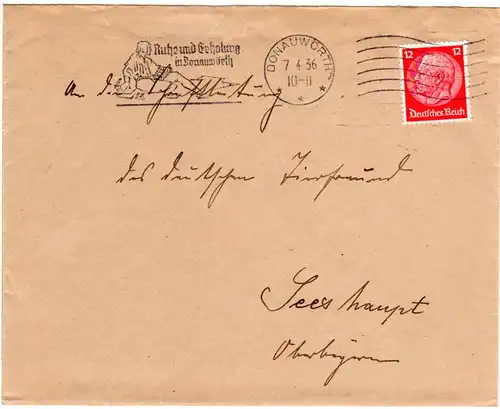 Ruhe und Erholung
in Donauwörth
DONAUWÖRTH
7.4.36
10-11
12 12
Deutsches Reich
An die Schriftleitung
des deutschen Tierfreund
Seeshaupt
Oberbayern